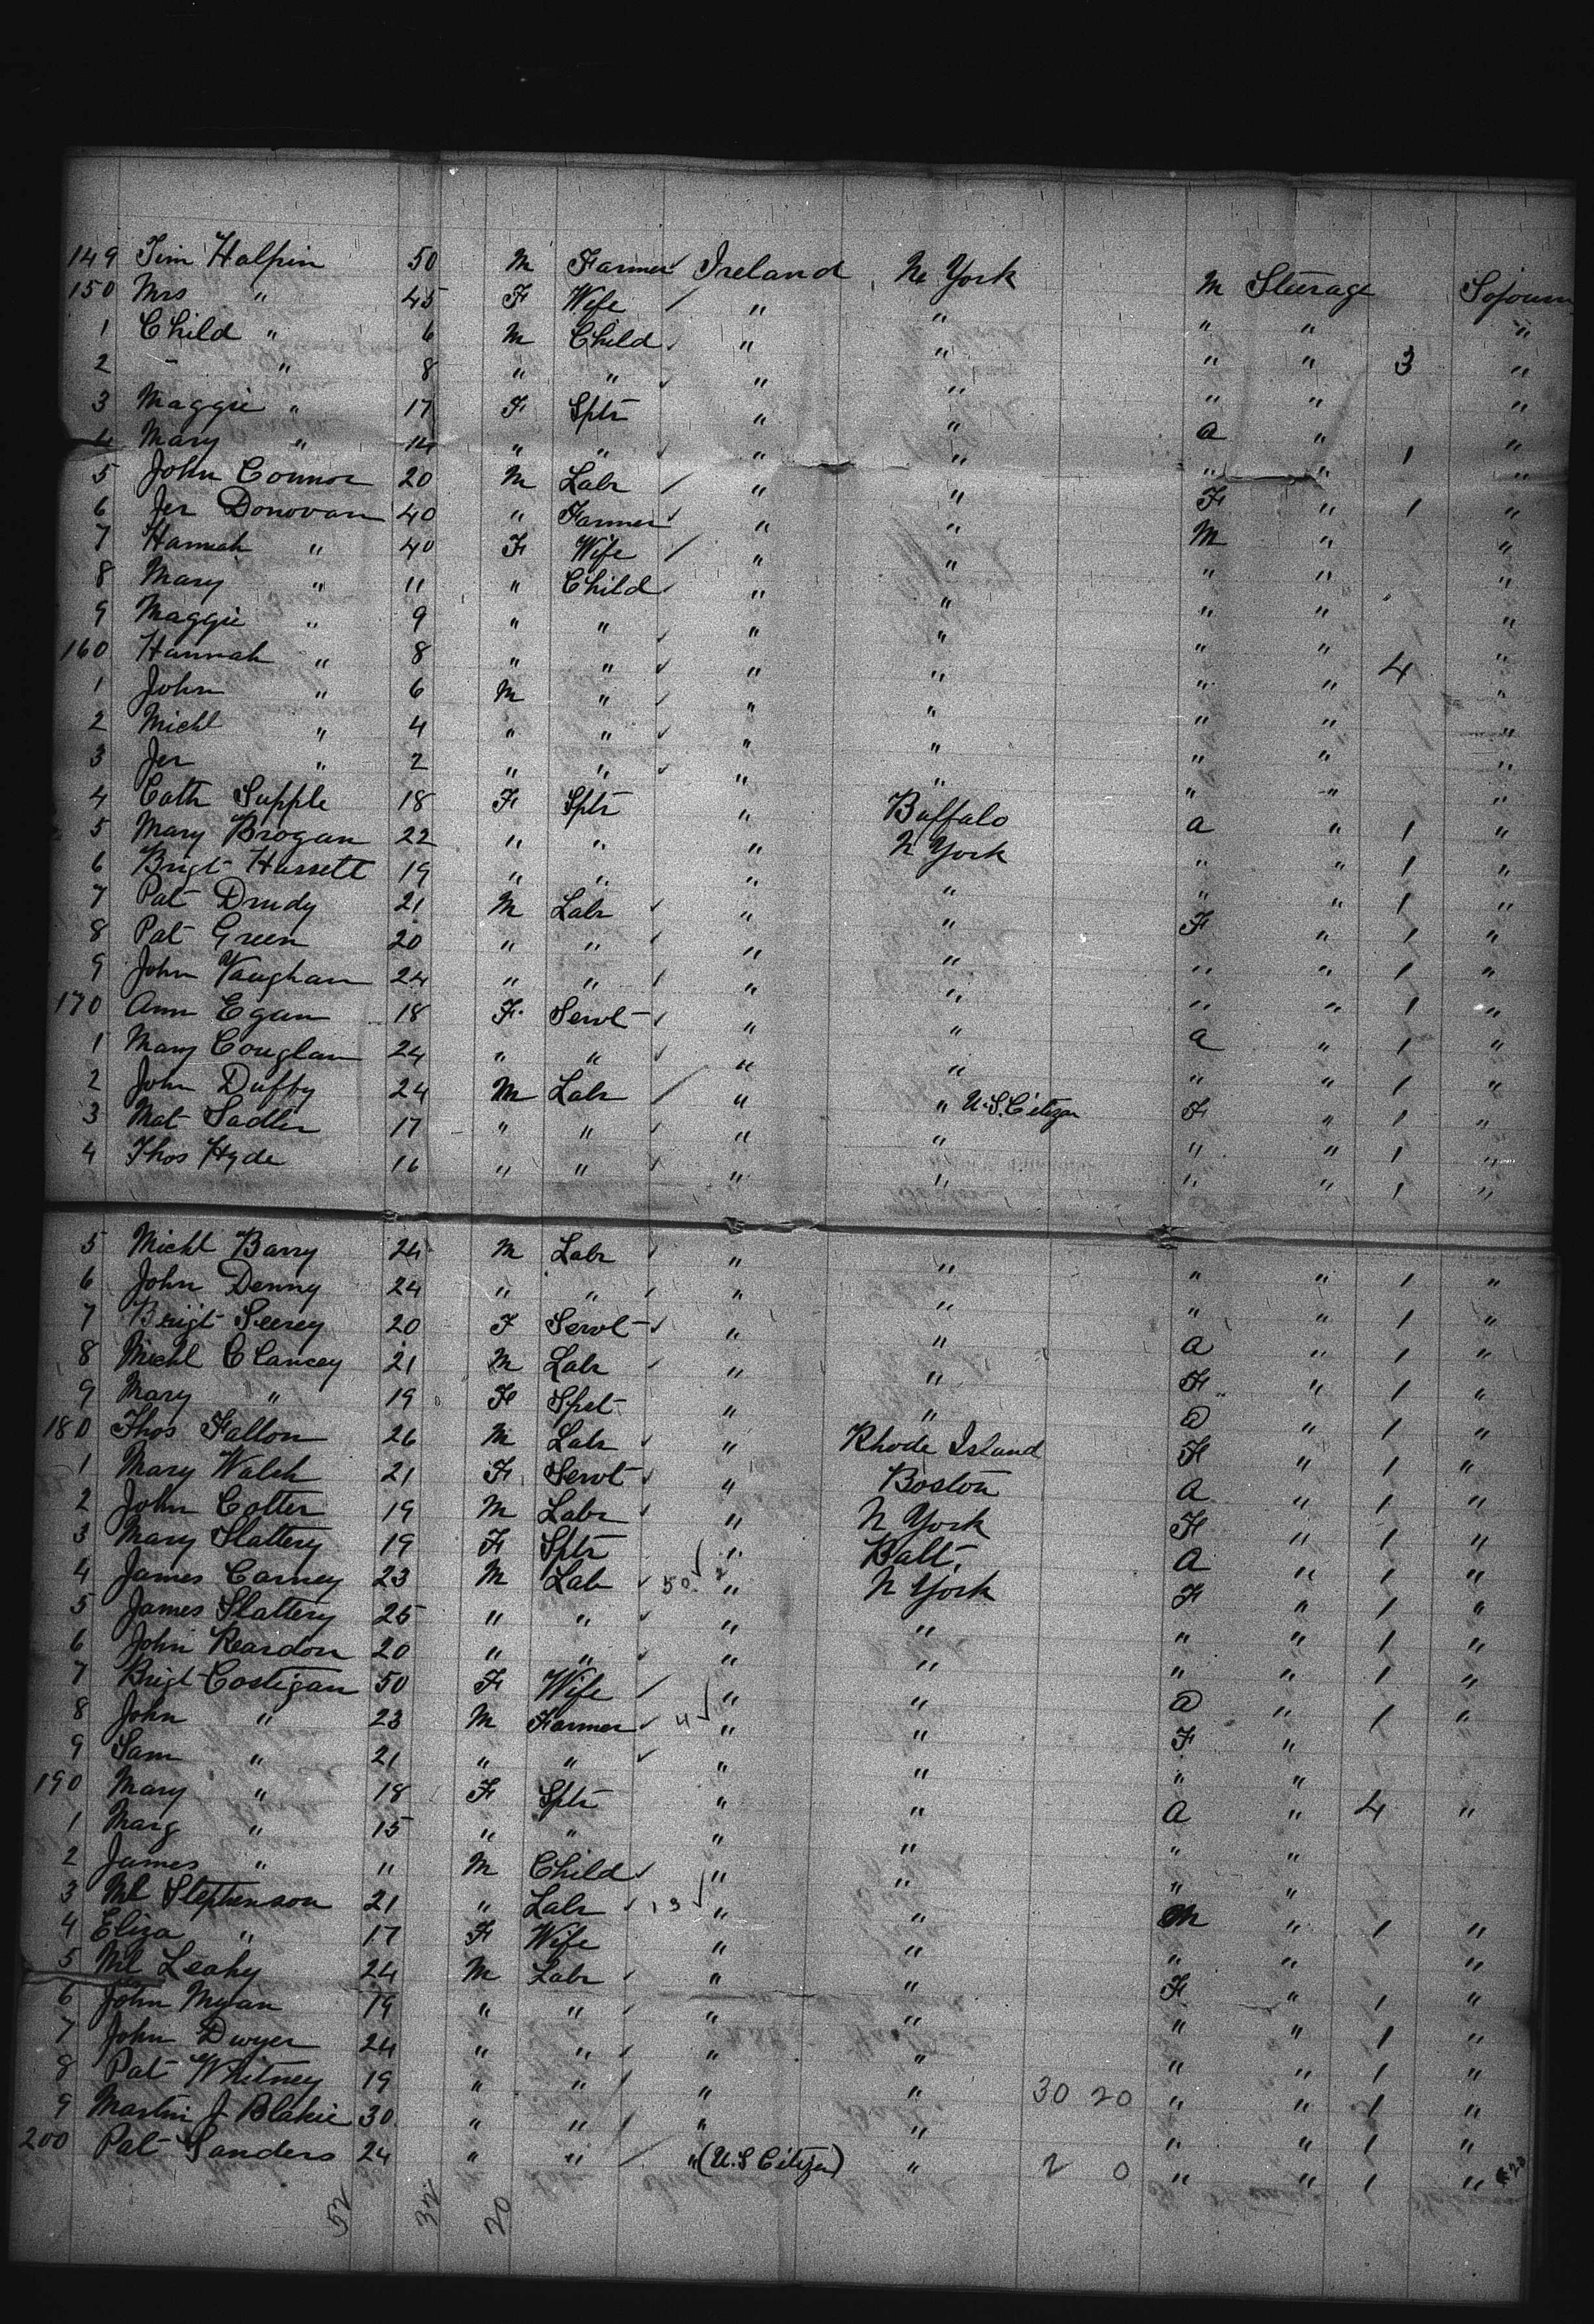 149 Tim Halpin 50 M Farmer Ireland N. York M Steerage Sojourn
150 Mrs " 45 F Wife / " " " " "
1 Child " 6 M Child " " " " 3 "
2 - " 8 " " " " " " "
3 Maggie " 17 F Sptr " " a " "
4 Mary " 14 " " " " " " 1 "
5 John Connor 20 M Labr / " " F " 1 "
6 Jer Donovan 40 " Farmer " " M " "
7 Hannah " 40 F Wife / " " " " "
8 Mary " 11 " Child " " " " "
9 Maggie " 9 " " " " " " "
160 Hannah " 8 " " " " " " 4 "
1 John " 6 M " " " " " "
2 Michl " 4 " " " " " " "
3 Jer " 2 " " " " " " "
4 Cath Supple 18 F Sptr " Buffalo a " 1 "
5 Mary Brogan 22 " " " N York " " 1 "
6 Brigt Hassett 19 " " " " " " 1 "
7 Pat Drudy 21 M Labr " " F " 1 "
8 Pat Green 20 " " " " " " 1 "
9 John Vaughan 24 " " " " " " 1 "
170 Ann Egan 18 F Servt " " a " 1 "
1 Mary Couglan 24 " " " " " " 1 "
2 John Duffy 24 M Labr / " " U.S. Citizen F " 1 "
3 Mat Sadler 17 " " " " " " 1 "
4 Thos Hyde 16 " " " " " " 1 "
5 Michl Barry 24 M Labr " " " " 1 "
6 John Denny 24 " " " " " " 1 "
7 Brigt Seerey 20 F Servt " " a " 1 "
8 Michl Clancey 21 M Labr " " F " 1 "
9 Mary " 19 F Spst " " a " 1 "
180 Thos Fallon 26 M Labr " Rhode Island F " 1 "
1 Mary Walsh 21 F Servt " Boston A " 1 "
2 John Cotter 19 M Labr " N York F " 1 "
3 Mary Slattery 19 F Sptr " Balt. A " 1 "
4 James Carney 23 M Lab 50 " N York F " 1 "
5 James Slattery 25 " " " " " " 1 "
6 John Reardon 20 " " " " " " 1 "
7 Brigt Costigan 50 F Wife / " " a " 1 "
8 John " 23 M Farmer 4 " " F "
9 Sam " 21 " " " " " "
190 Mary " 18 F Sptr " " A " 4 "
1 Marg " 15 " " " " " "
2 James " " M Child " " " "
3 Ml Stephenson 21 " Labr 13 " " M " 1 "
4 Eliza " 17 F Wife " " " " "
5 Ml Leahy 24 M Labr " " F " 1 "
6 John Myan 19 " " " " " " 1 "
7 John Dwyer 24 " " " " " " 1 "
8 Pat Whitney 19 " " / " " 30 20 " " 1 "
9 Martin J Blakie 30 " " / " " " " 1 "
200 Pat Sanders 24 " " / " (U.S Citizen) " 2 0 " " 1 "
52 32 20